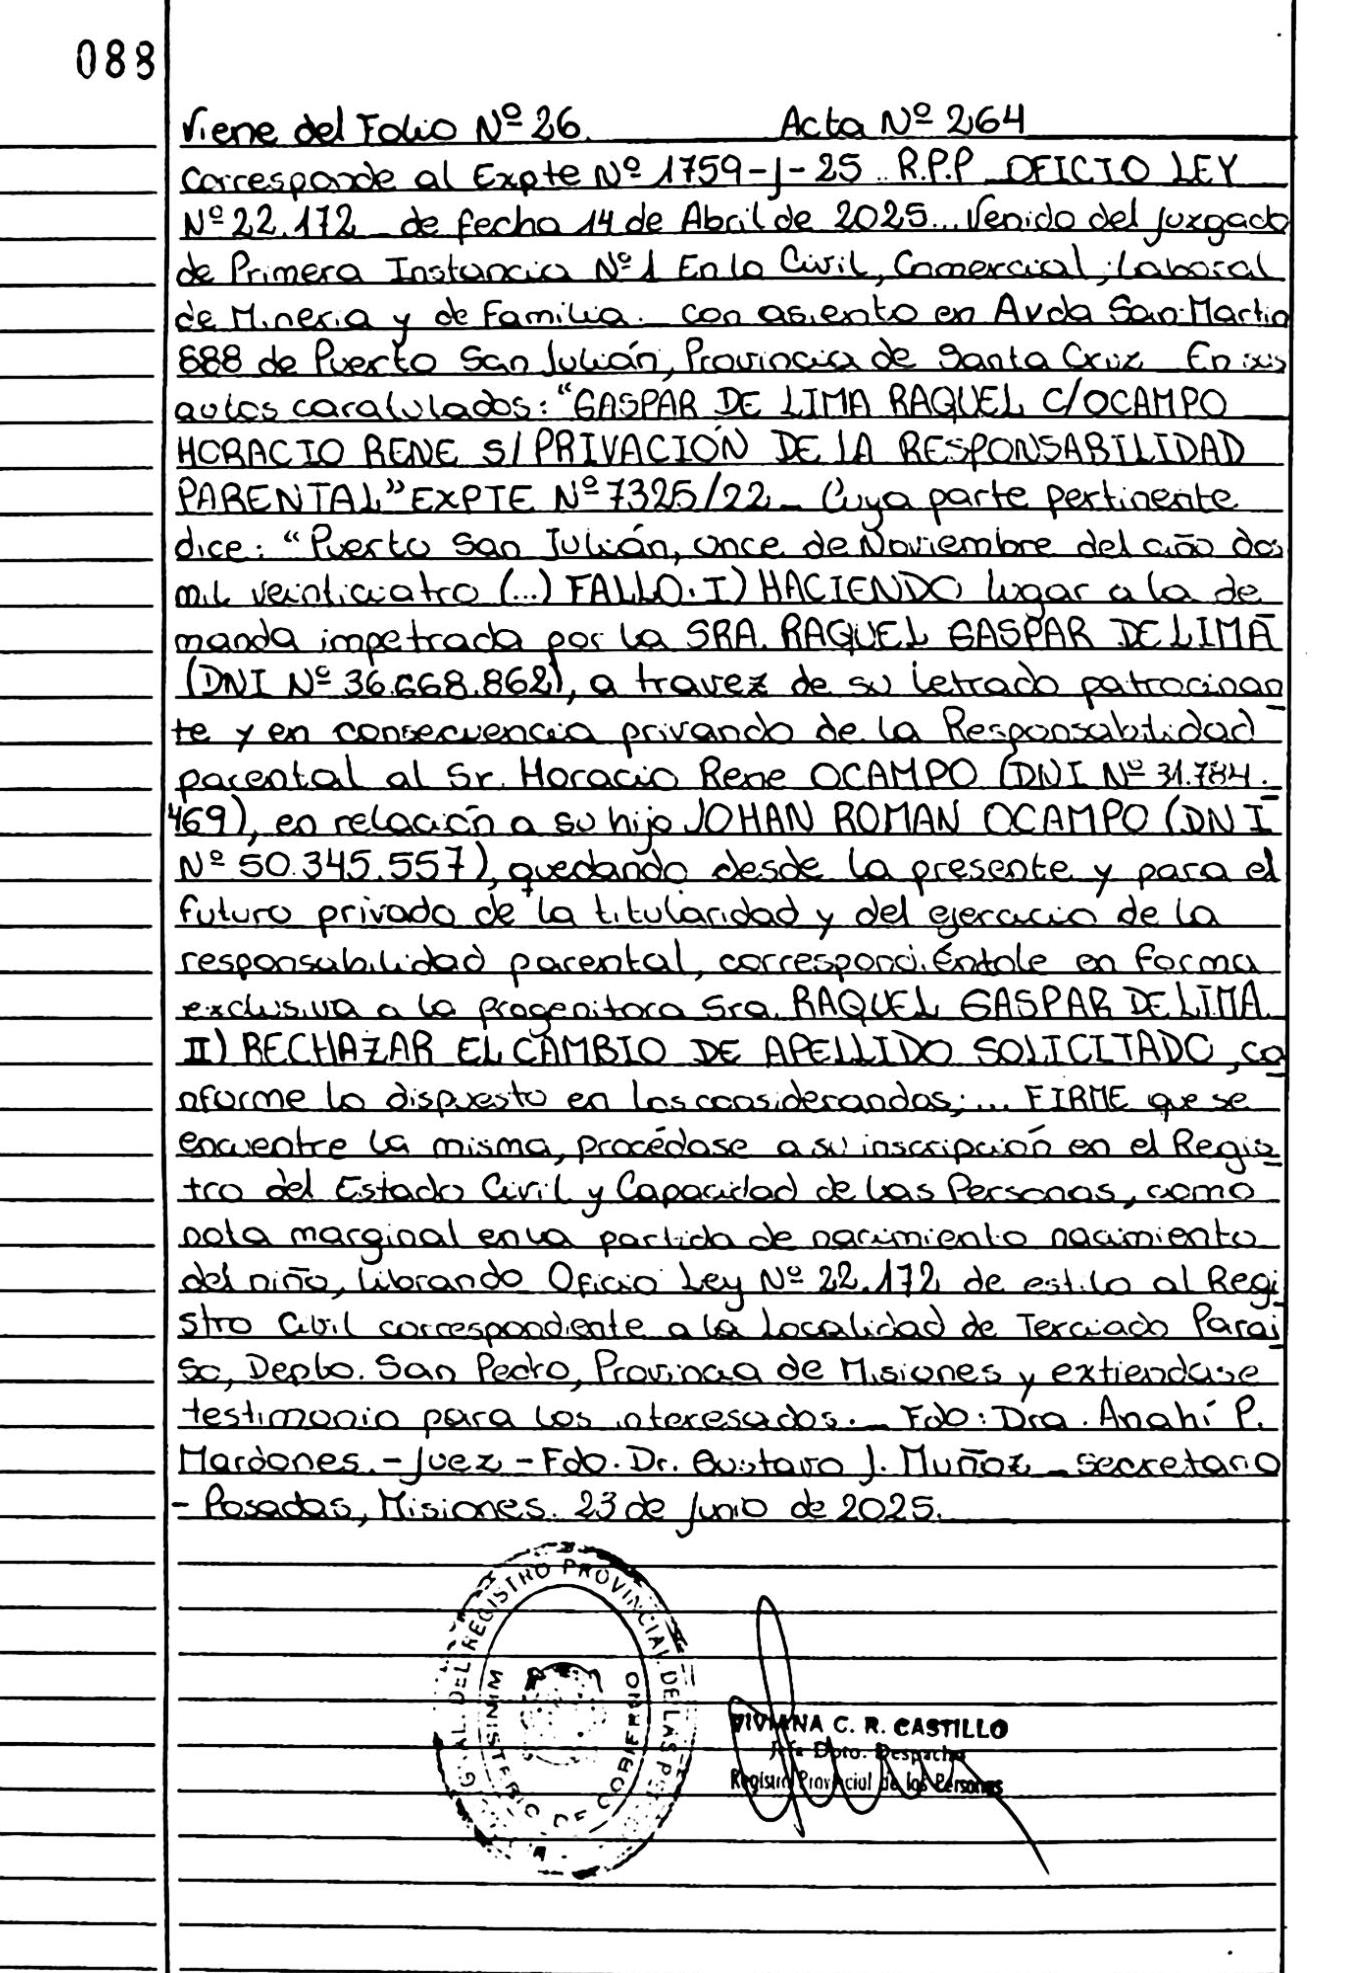 088
Viene del Folio Nº 26. Acta Nº 264
Corresponde al Expte Nº 1759-J-25.. R.P.P OFICIO LEY
Nº 22.172 de fecha 14 de Abril de 2025... Venido del Juzgado
de Primera Instancia Nº 1 En lo Civil, Comercial, Laboral
de Mineria y de Familia. con asiento en Avda San Martin
888 de Puerto San Julián, Provincia de Santa Cruz En sus
autos caratulados: "GASPAR DE LIMA RAQUEL C/OCAMPO
HORACIO RENE S/PRIVACIÓN DE LA RESPONSABILIDAD
PARENTAL" EXPTE Nº 7325/22 - Cuya parte pertinente
dice: "Puerto San Julián, once de Noviembre del año dos
mil veinticuatro (...) FALLO. I) HACIENDO lugar a la de
manda impetrada por la SRA. RAQUEL GASPAR DE LIMA
(DNI Nº 36.668.862), a travez de su letrado patrocinan
te y en consecuencia privando de la Responsabilidad
parental al Sr. Horacio Rene OCAMPO (DNI Nº 31.784.
469), en relación a su hijo JOHAN ROMAN OCAMPO (DNI
Nº 50.345.557), quedando desde la presente y para el
futuro privado de la titularidad y del ejercicio de la
responsabilidad parental, correspondiéntole en forma
exclusiva a la progenitora Sra. RAQUEL GASPAR DE LIMA
II) RECHAZAR EL CAMBIO DE APELLIDO SOLICITADO, co
nforme lo dispuesto en los considerandos;... FIRME que se
encuentre la misma, procédase a su inscripción en el Regis
tro del Estado Civil y Capacidad de las Personas, como
nota marginal en la partida de nacimiento nacimiento
del niño, librando Oficio Ley Nº 22.172 de estilo al Regi
stro Civil correspondiente a la Localidad de Terciado Parai
so, Depto. San Pedro, Provincia de Misiones y extiendase
testimonio para los interesados. - Fdo: Dra. Anahí P.
Mardones. - Juez - Fdo. Dr. Gustavo J. Muñoz - secretario
- Posadas, Misiones. 23 de Junio de 2025.
G AL DEL REGISTRO PROVINCIAL DE LAS PE
MINISTERIO DE GOBIERNO
VIVIANA C. R. CASTILLO
Jefa Dpto. Despacho
Registro Provincial de las Personas